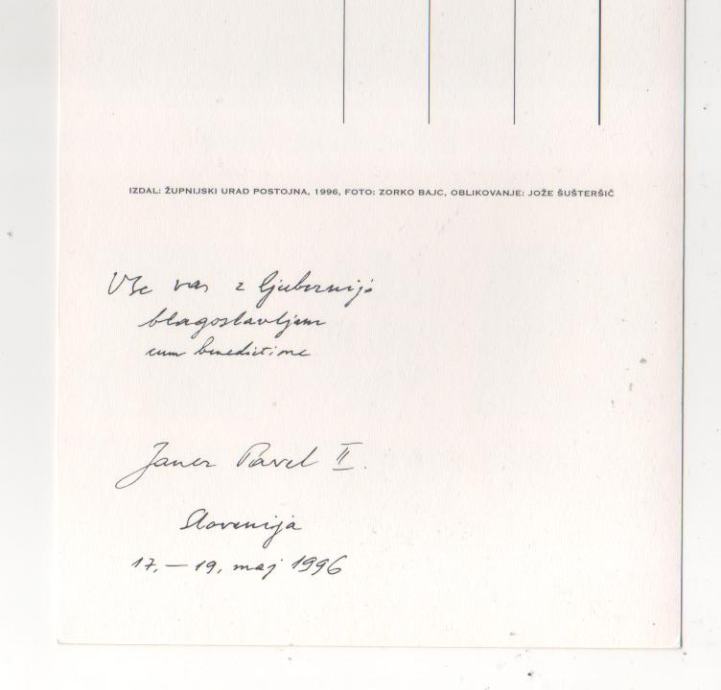 IZDAL: ŽUPNIJSKI URAD POSTOJNA, 1996, FOTO: ZORKO BAJC, OBLIKOVANJE: JOŽE ŠUŠTERŠIČ
Vse vas z ljubeznijo
blagoslavljam
cum benedictione
Janez Pavel II.
Slovenija
17. – 19. maj 1996